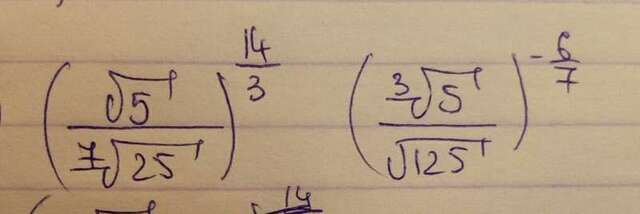 (√5 / ⁷√25)^(14/3) (³√5 / √125)^(-6/7)
14